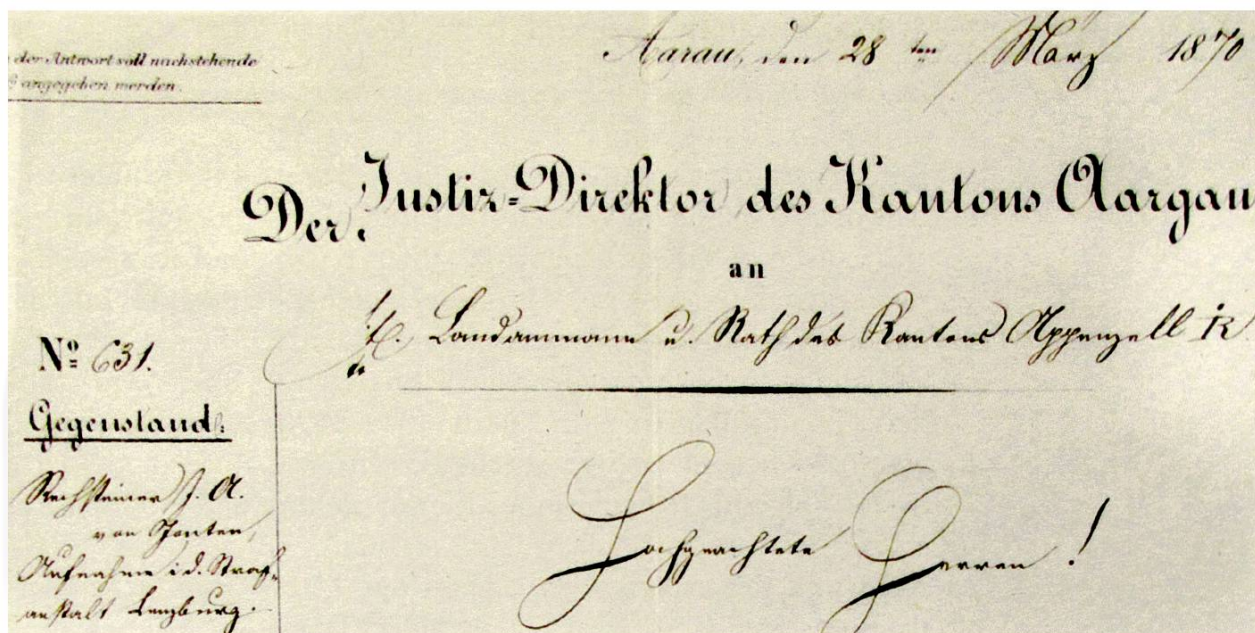 der Antwort soll nachstehende
angegeben werden.
Aarau, den 28 ten März 1870
Der Justiz-Direktor des Kantons Aargau
an
Landammann u. Rath des Kantons Appenzell IR
Nº 631.
Gegenstand:
Rechsteiner J. A.
von
Aufnahme i. d. Straf-
anstalt Lenzburg.
Hochgeachtete Herren!